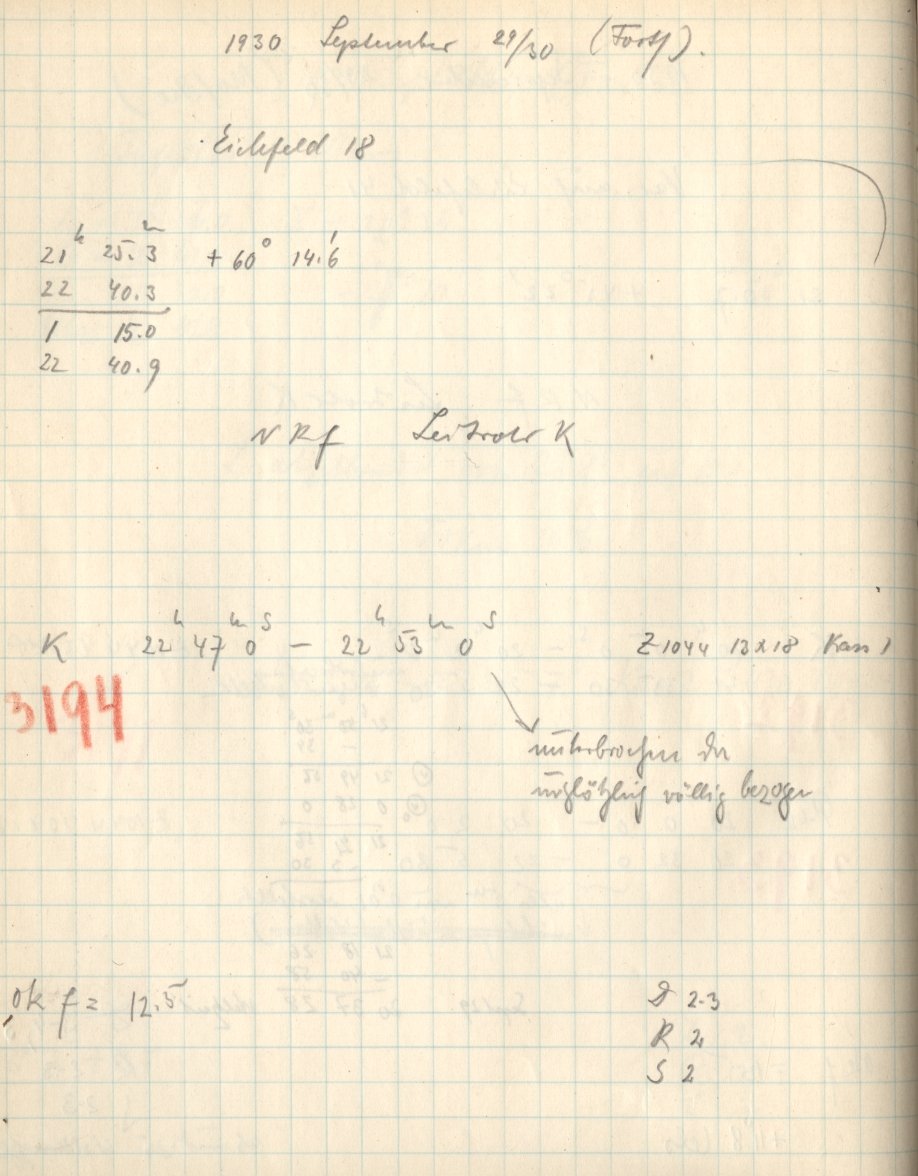 1930 September 29/30 (Forts).
Eichfeld 18
21h 25.3m + 60° 14.6'
22 40.3
1 15.0
22 40.9
Leitrohr K
K 22h 47m 0s — 22h 53m 0s Z 1044 13x18 Kass 1
3194
unterbrochen da
urplötzlich völlig bezogen
Ok f = 12.5
D 2.3
R 2
S 2